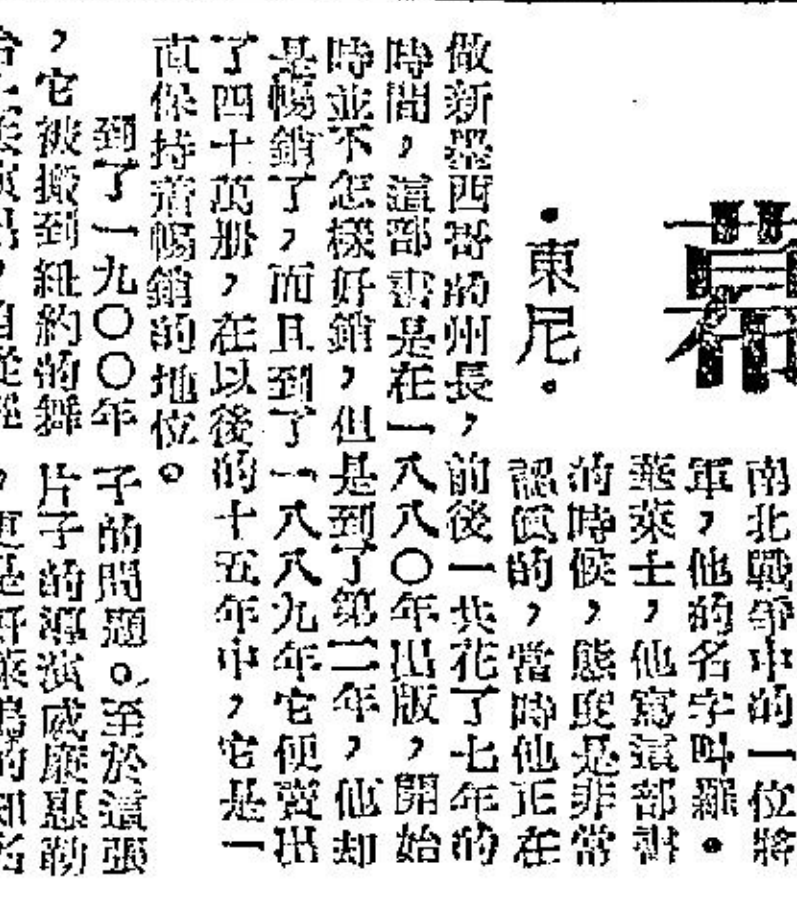 幕
・東尼・
南北戰爭中的一位將
軍，他的名字叫羅・
華萊士，他寫這部書
的時候，態度是非常
認真的，當時他正在
做新墨西哥的州長，前後一共花了七年的
時間，這部書是在一八八〇年出版，開始
時並不怎樣好銷，但是到了第二年，他却
是暢銷了，而且到了一八八九年它便賣出
了四十萬册，在以後的十五年中，它是一
直保持着暢銷的地位。
到了一九〇〇年
，它被搬到紐約的舞
子的問題。至於這張
片子的導演威廉惠勒